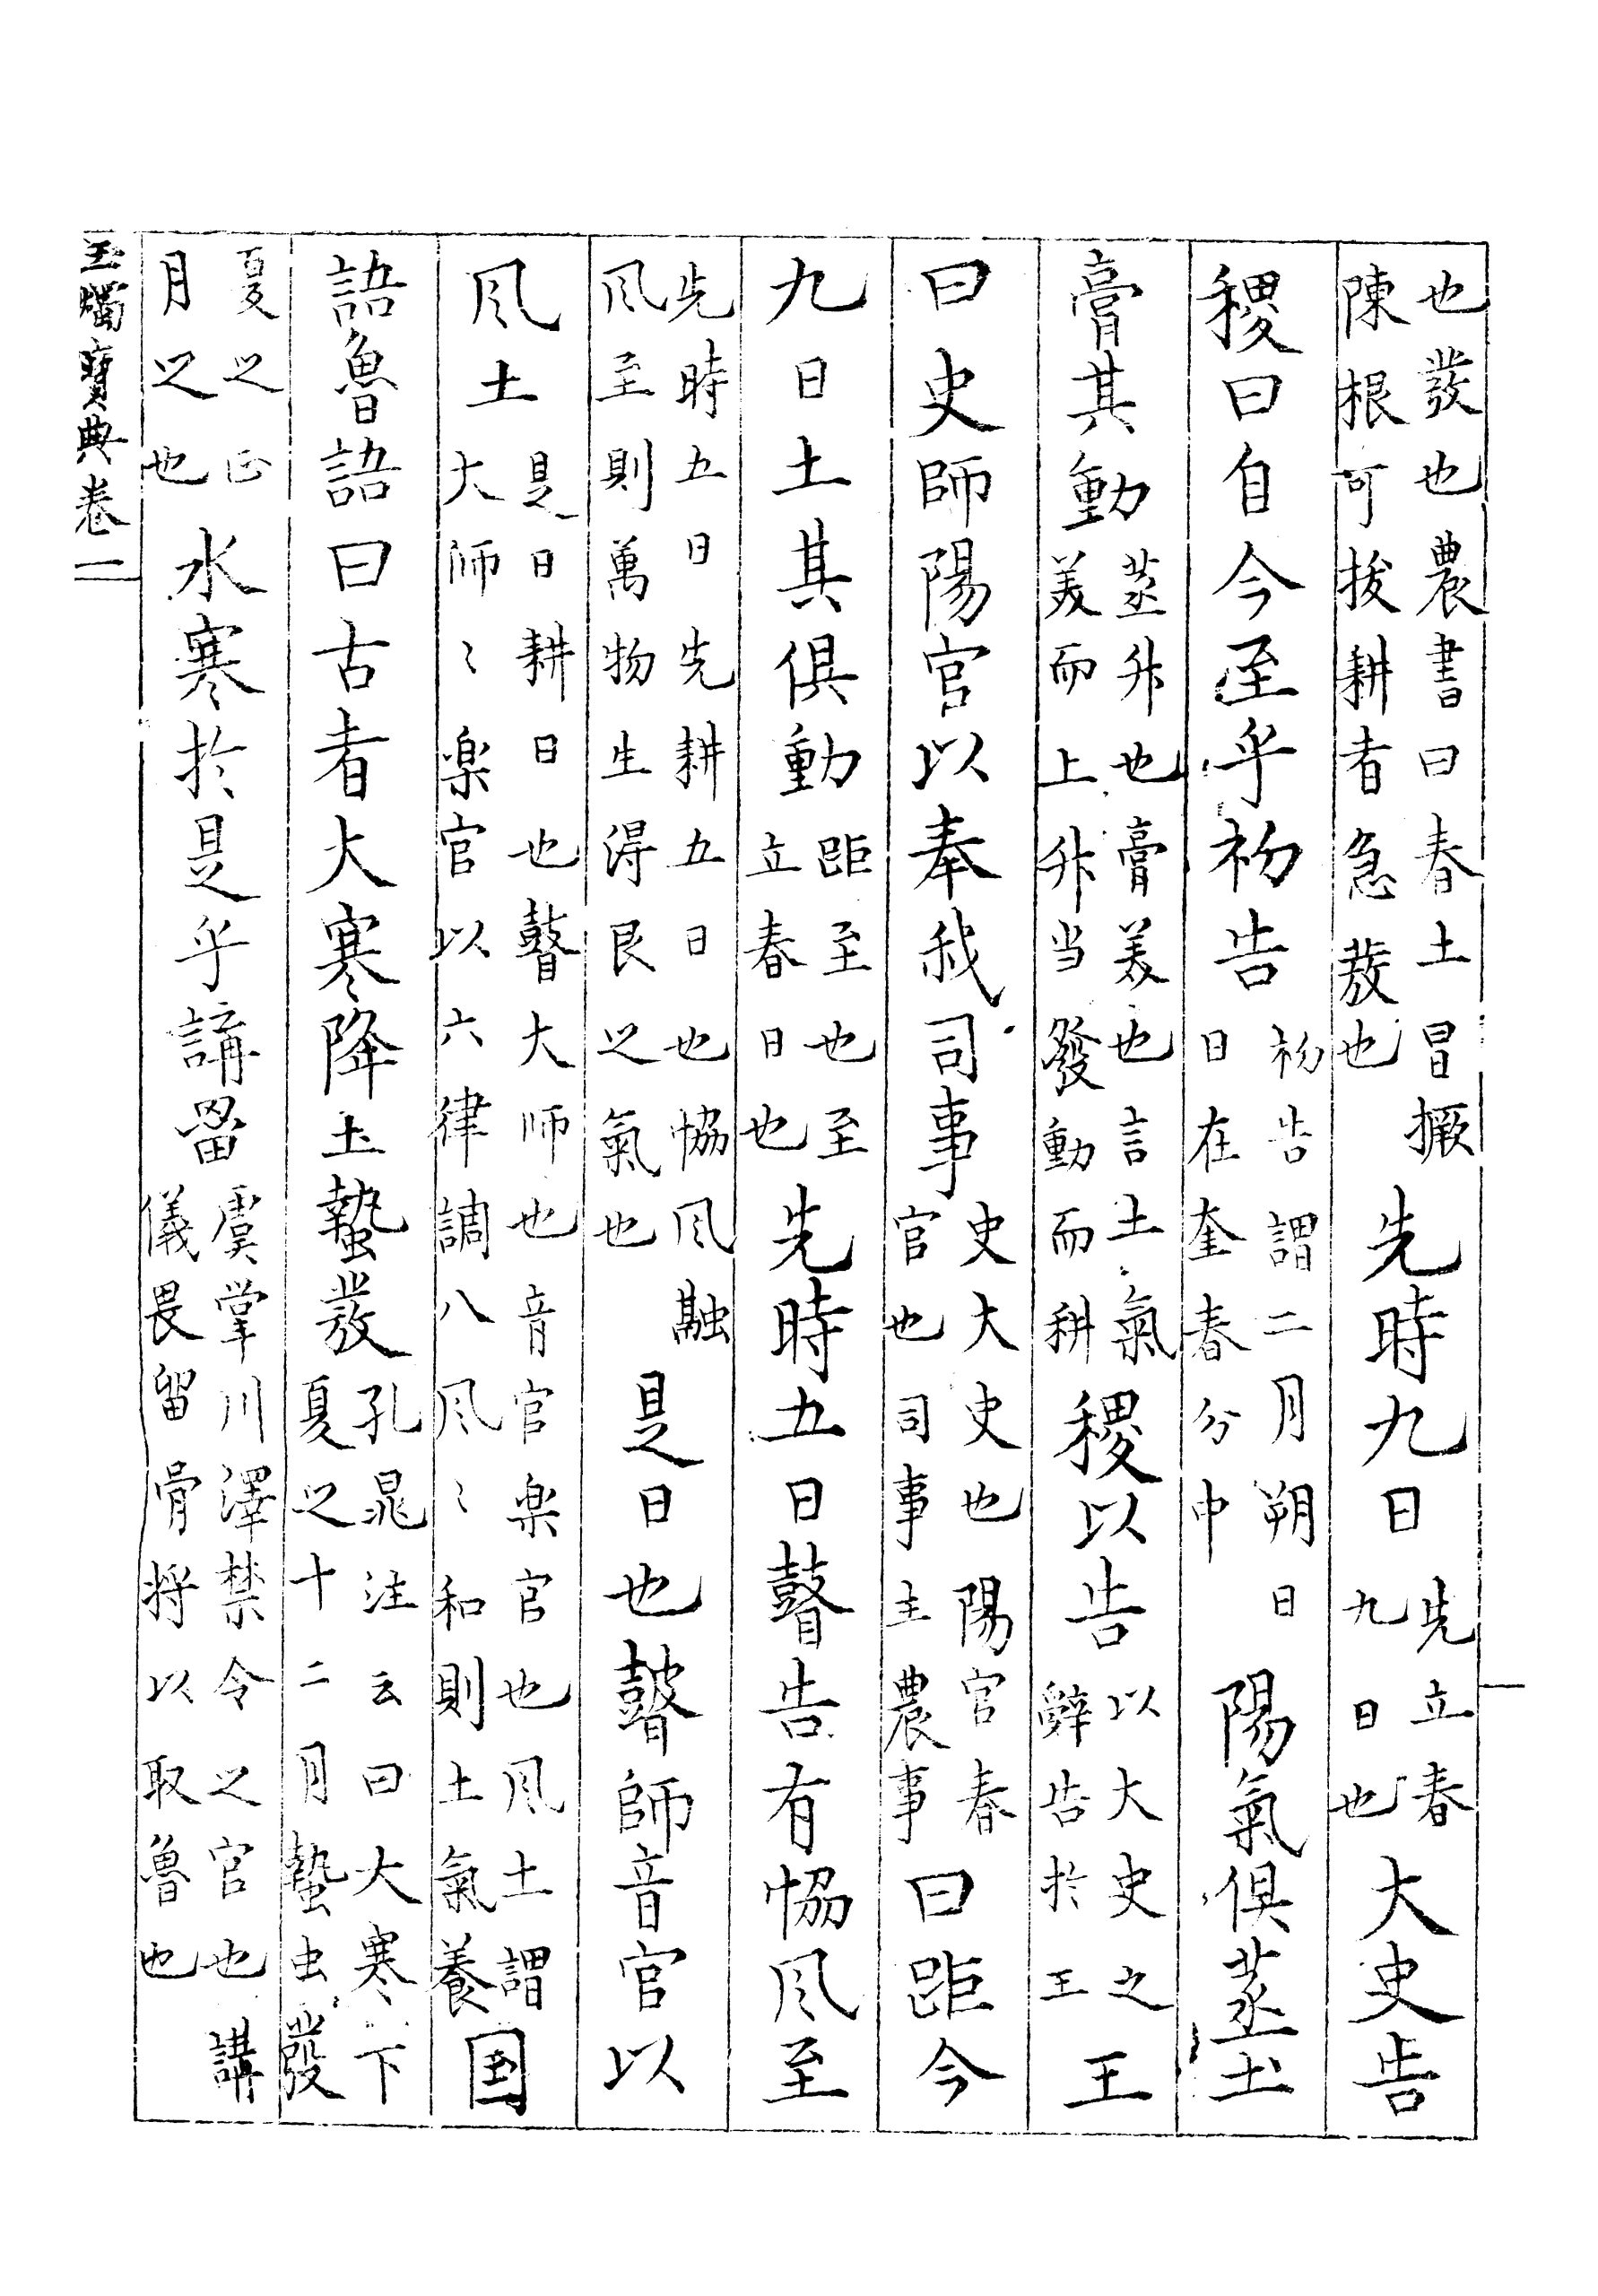 也發也農書曰春土冒撅陳根可拔耕者急發也先時九日先立春九日也大史告
稷曰自今至乎初告初告謂二月朔日日在奎春分中陽氣俱蒸土
膏其動蒸升也膏美也言土氣美而上升当發動而耕稷以告以大史之辭告於王王
曰史師陽官以奉我司事史大史也陽官春官也司事主農事曰距今
九日土其俱動距至也至立春日也先時五日瞽告有恊风至
先時五日先耕五日也恊风融风至則萬物生得艮之氣也是日也瞽師音官以
风土是日耕日也瞽大师也音官楽官也风土謂大师〻楽官以六律調八风〻和則土氣養国
語魯語曰古者大寒降土蟄發孔晁注云曰大寒下夏之十二月蟄虫發
夏之正月之也水寒於是乎講罶虞掌川澤禁令之官也講儀畏留骨将以取魯也
玉燭寶典卷一